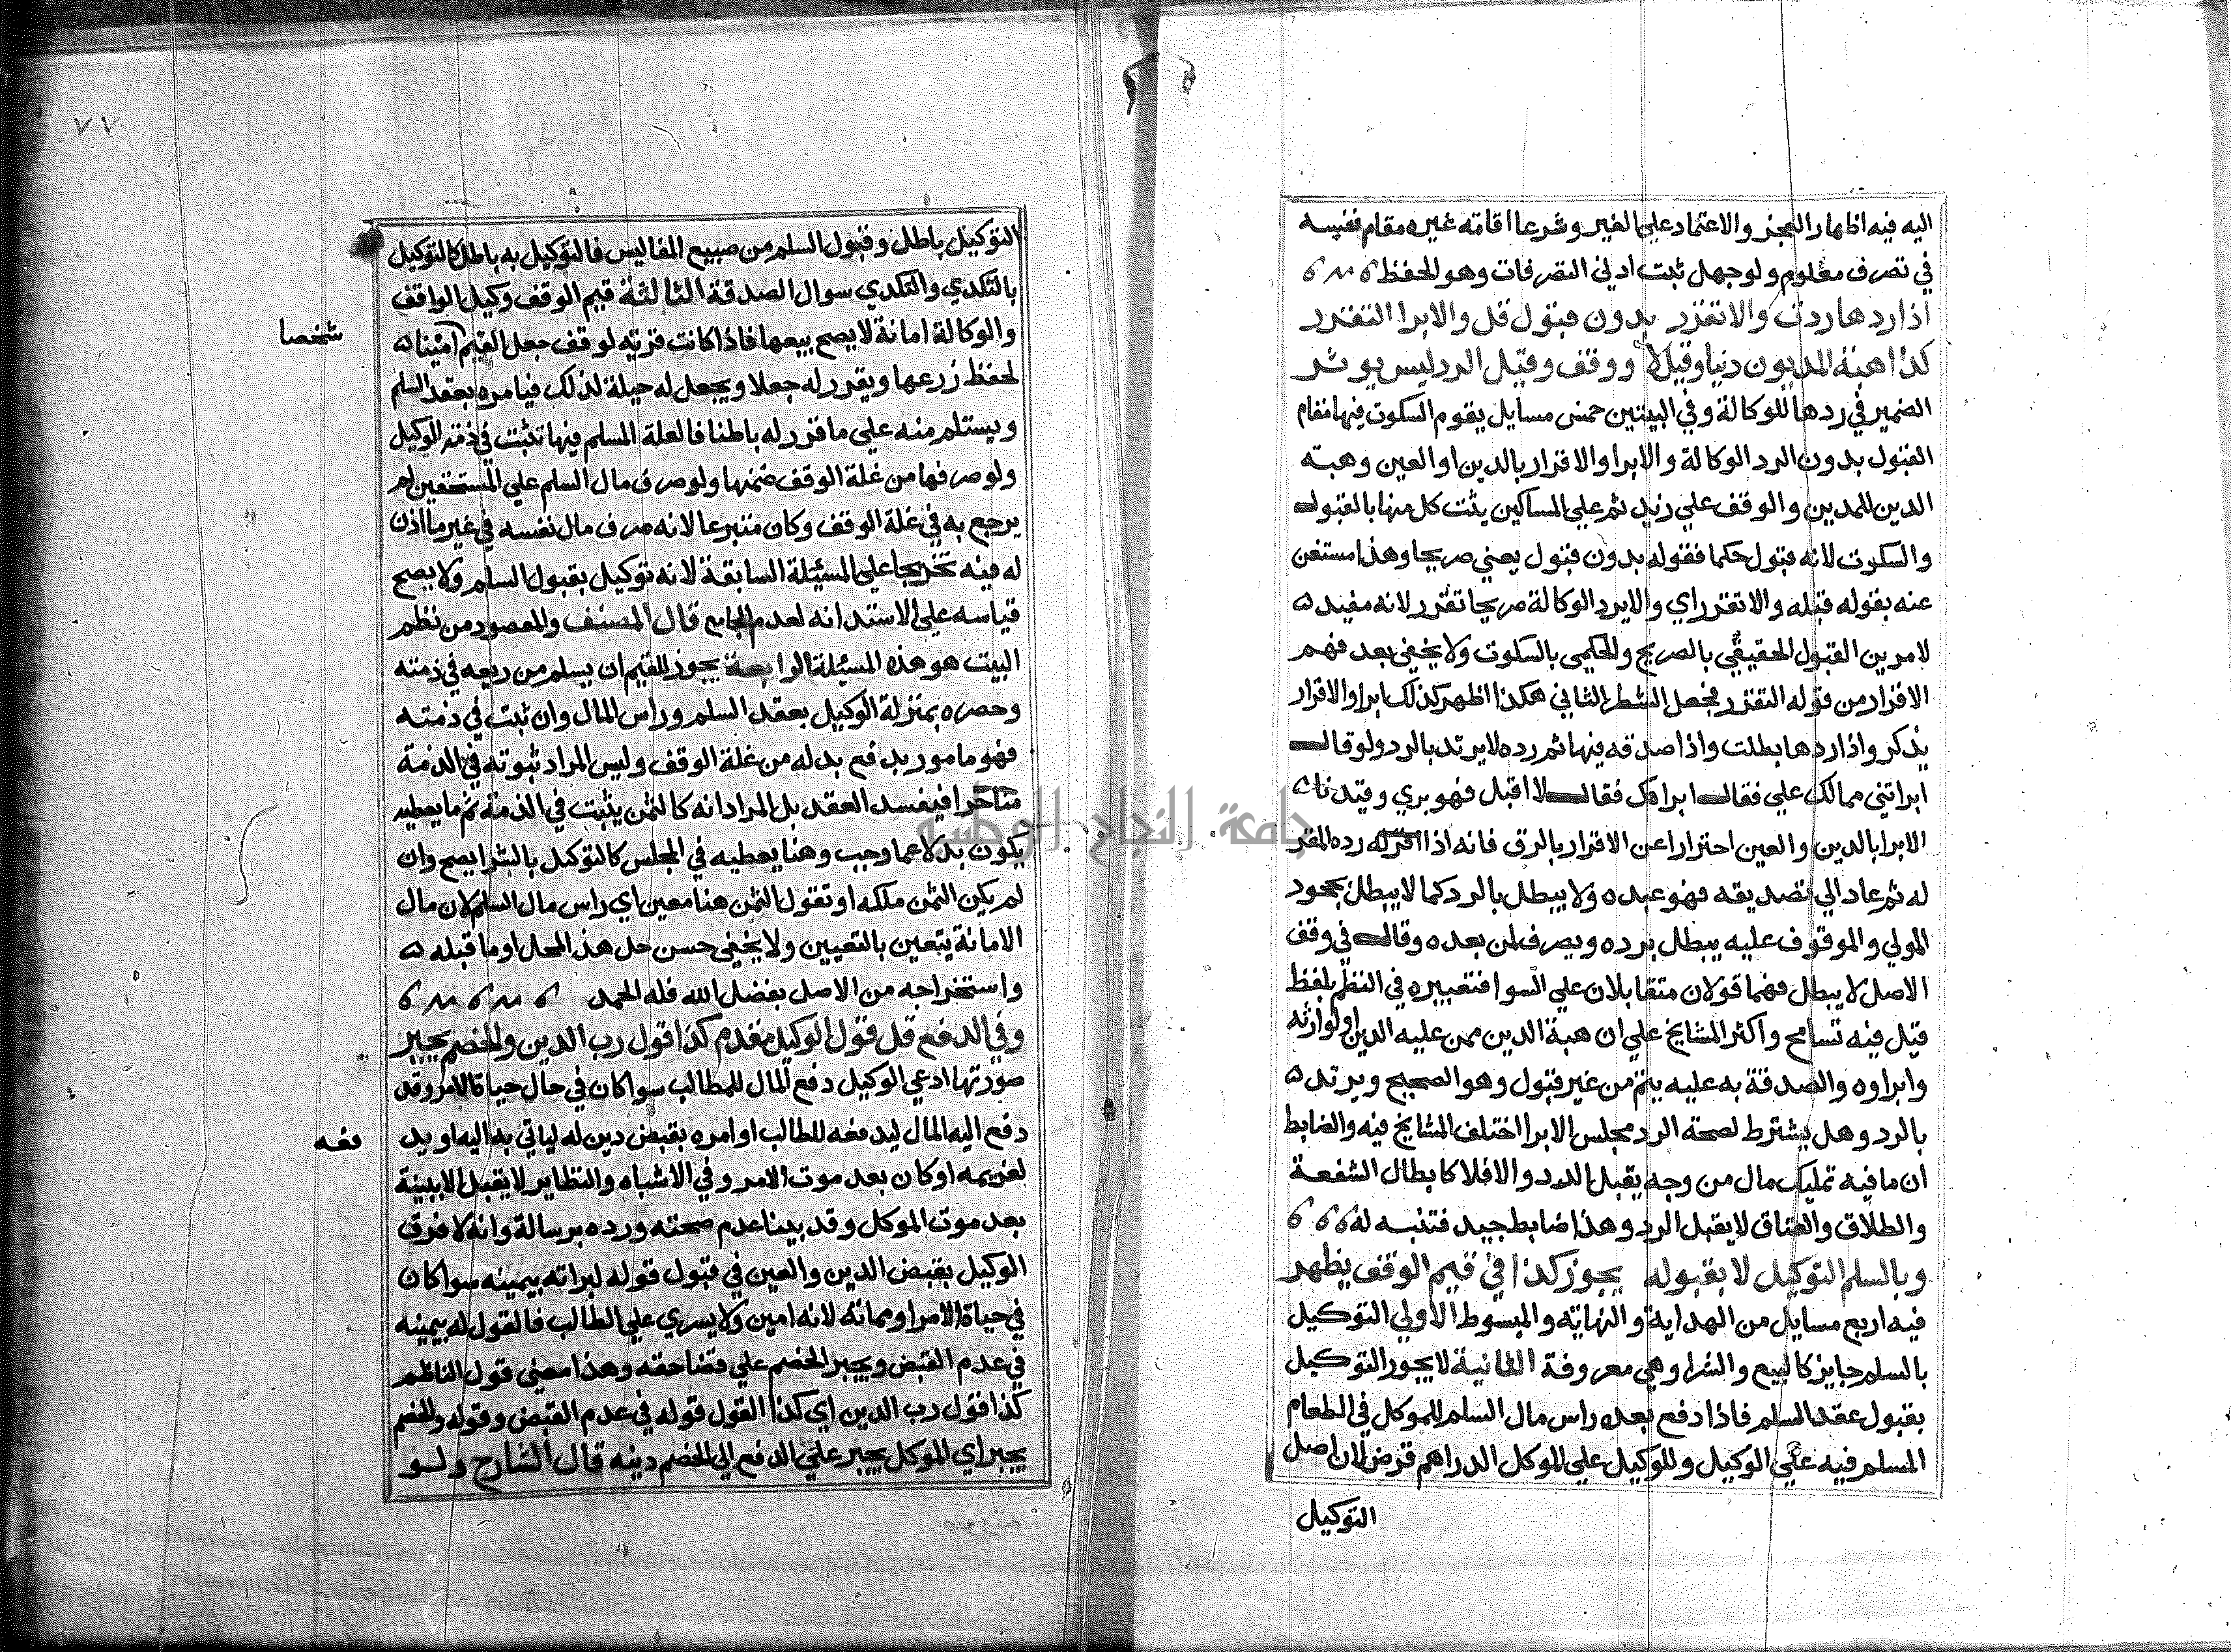 اليه فيه اظهار العجز والاعتماد علي الغير وشرعا اقامته غيره مقام نفسه
في تصرف معلوم ولو جهل ثبت ادني التصرفات وهو الحفظ
اذا ردها ردت والا تقرر بدون قبول قل والابرا التقرر
كذا هبة المديون دينا وقيل لا ووقف وقبل الرد ليس يوثر
الضمير في ردها للوكالة وفي البيتين خمس مسايل يقوم السكوت فيها مقام
القبول بدون الرد الوكالة والابرا والاقرار بالدين او العين وهبته
الدين للمدين والوقف علي زيد ثم علي المساكين يثت كل منها بالقبول
والسكوت لانه قبول حكما فقوله بدون قبول يعني صريحا وهذا مستغن
عنه بقوله قبله والا تقرر اي والا يرد الوكالة صريحا تقرر لانه مفيد
لامرين القبول الحقيقي بالصريح والحكمي بالسكوت ولا يخفي بعد فهم
الاقرار من قوله التقرر فجعل الشطر الثاني هكذا اظهر كذلك ابرا والاقرار
يذكر واذا ردها بطلت واذا صدقه فيها ثم رده لا يرتد بالرد ولو قال
ابراتني مما لك علي فقال ابراتك فقال لا اقبل فهو بري وقيدنا
الابرا بالدين والعين احترارا عن الاقرار بالرق فانه اذا اقر له رده المقر
له ثم عاد الي تصديقه فهو عبده ولا يبطل بالرد كما لا يبطل بجحود
المولي والموقوف عليه يبطل برده ويصرف لمن بعده وقال في وقف
الاصل لا يبطل فهما قولان متقابلان علي السوا فتعبيره في النظم بلفظ
قيل فيه تسامح واكثر المشايخ علي ان هبة الدين ممن عليه الدين او لوارثه
وابراوه والصدقة به عليه يتم من غير قبول وهو الصحيح ويرتد
بالرد وهل يشترط لصحة الرد مجلس الابرا اختلف المشايخ فيه والضابط
ان ما فيه تمليك مال من وجه يقبل الرد والا فلا كابطال الشفعة
والطلاق والعتاق لا يقبل الرد وهذا ضابط جيد فتنبه له
وبالسلم التوكيل لا بقبوله يجوز كذا في قيم الوقف يظهر
فيه اربع مسايل من الهداية والنهاية والمبسوط الاولي التوكيل
بالسلم جايز كالبيع والشرا وهي معروفة الثانية لا يجوز التوكيل
بقبول عقد السلم فاذا دفع بعده راس مال السلم للموكل في الطعام
المسلم فيه علي الوكيل وللوكيل علي الموكل الدراهم قرض لان اصل
التوكيل
٧٧
التوكيل باطل وقبول السلم من صبيع المفاليس فالتوكيل به باطل كالتوكيل
بالتكدي والتكدي سوال الصدقة الثالثة قيم الوقف وكيل الواقف
والوكالة امانة لا يصح بيعها فاذا كانت قرية لوقف جعل القيم امينا
شخصا
لحفظ زرعها ويقرر له جعلا ويجعل له حيلة لذلك فيامره بعقد السلم
ويستلم منه علي ما قرر له باطنا فالعلة المسلم فيها تثبت في ذمة الوكيل
ولو صرفها من غلة الوقف ضمنها ولو صرف مال السلم علي المستحقين لم
يرجع به في غلة الوقف وكان متبرعا لانه صرف مال نفسه في غير ما اذن
له فيه تخريجا علي المسيئلة السابقة لانه توكيل بقبول السلم ولا يصح
قياسه علي الاستدانه لعدم الجامع قال المصنف والمعصود من نظم
البيت هو هذه المسئلة الرابعة يجوز للقيم ان يسلم من ريعه في ذمته
وحصره بمنزلة الوكيل بعقد السلم وراس المال وان ثبت في ذمته
فهو مامور بدفع بدله من غلة الوقف وليس المراد ثبوته في الذمة
متاخرا فيفسد العقد بل المراد انه كالثمن يثبت في الذمة ثم ما يعطيه
يكون بدلا عما وجب وهنا يعطيه في المجلس كالتوكيل بالشرا يصح وان
لم يكن الثمن ملكه او تقول الثمن هنا معين اي راس مال السلم لان مال
الامانة يتعين بالتعيين ولا يخفي حسن حل هذا المحل او ما قبله
واستخراجه من الاصل بفضل الله فله الحمد
وفي الدفع قل قول الوكيل مقدم كذا قول رب الدين والخصم يجبر
صورتها ادعي الوكيل دفع المال للمطالب سوا كان في حال حياة الامر وقد
دفع اليه المال ليدفعه للطالب او امره بقبض دين له لياتي به اليه او يد
فعه
لغريمه او كان بعد موت الامر وفي الاشباه والنظاير لا يقبل الا ببينة
بعد موت الموكل وقد بينا عدم صحته ورده برسالة وانه لا فرق
الوكيل بقبض الدين والعين في قبول قوله لبراته بيمينه سوا كان
في حياة الامر او مماته لانه امين ولا يسري علي الطالب فالقول له بيمينه
في عدم القبض ويجبر الخصم علي قضا حقه وهذا معني قول الناظم
كذا قول رب الدين اي كذا القول قوله في عدم القبض وقوله والخصم
يجبر اي الموكل يجبر علي الدفع الي الخصم دينه قال الشارح ولو
جامعة النجاح الوطنية